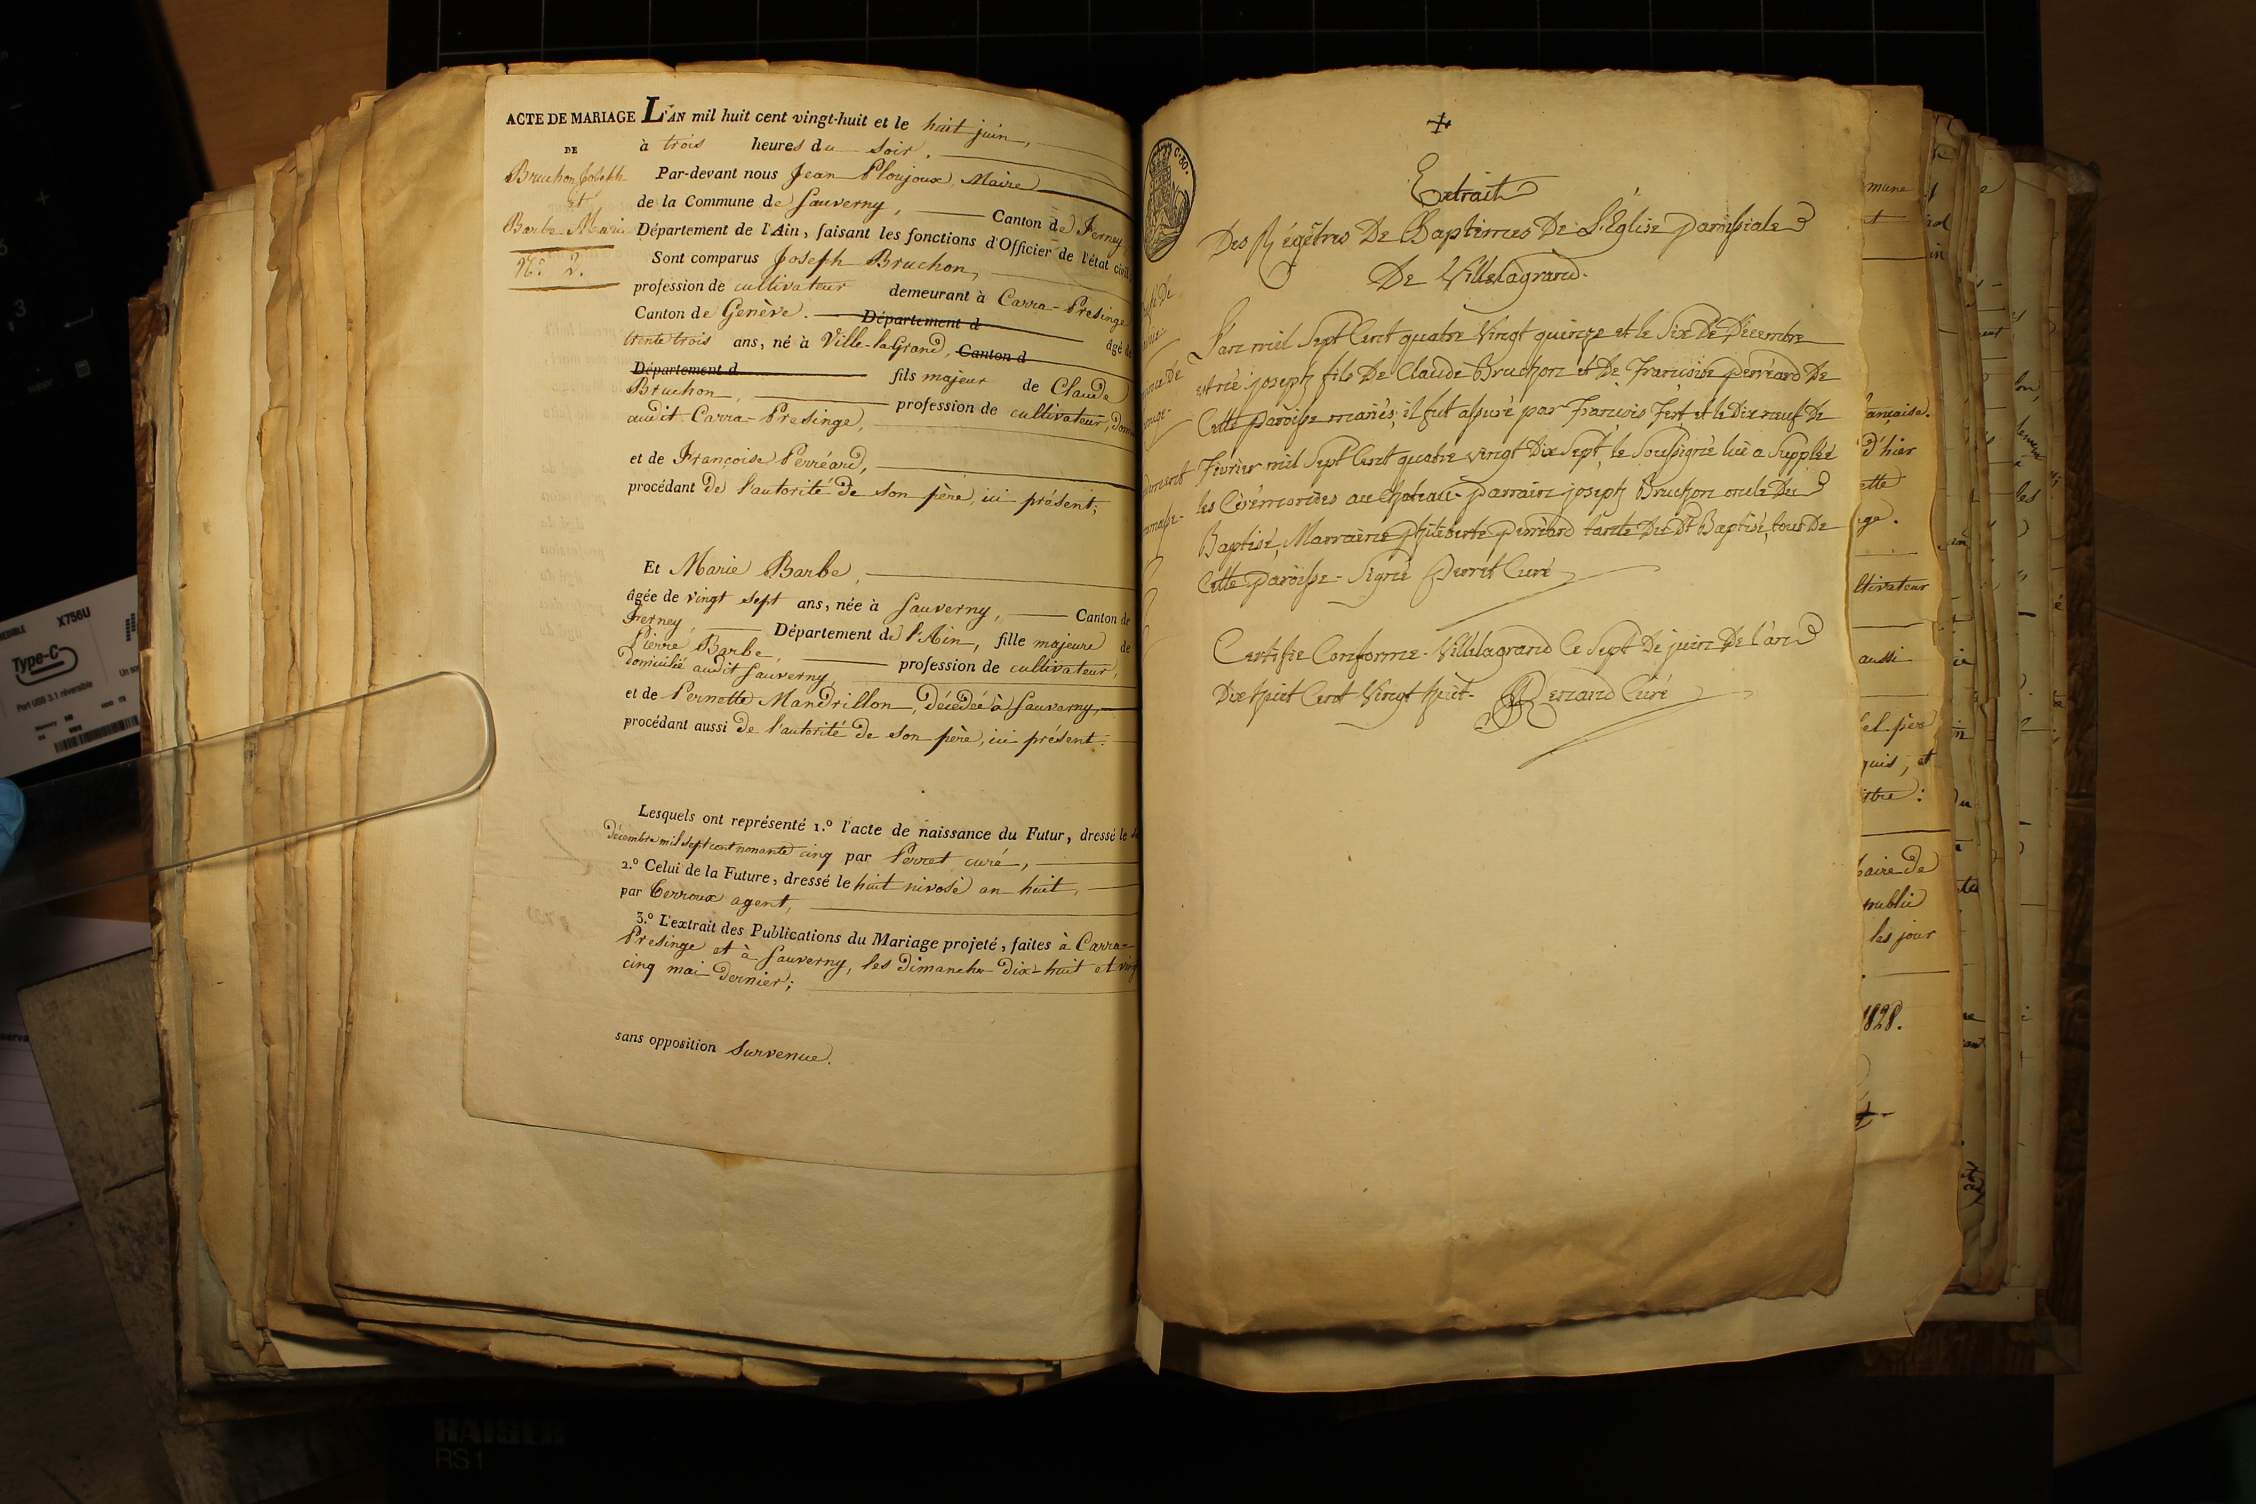 ACTE DE MARIAGE
DE
Bruchon Joseph
et
Barbe Marie
N.º 2.
L'AN mil huit cent vingt-huit et le huit juin,
à trois heures du soir,
Par-devant nous Jean Ploujoux, Maire
de la Commune de Sauverny, Canton de Ferney
Département de l'Ain, faisant les fonctions d'Officier de l'état civil,
Sont comparus Joseph Bruchon,
profession de cultivateur demeurant à Carra-Presinge
Canton de Genève. Département d âgé de
trente trois ans, né à Ville-la-Grand, Canton d
Département d fils majeur de Claude
Bruchon, profession de cultivateur,
audit Carra-Presinge,
et de Françoise Perréard,
procédant de l'autorité de son père, ici présent;
Et Marie Barbe,
âgée de vingt sept ans, née à Sauverny, Canton de
Ferney, Département de l'Ain, fille majeure de
Pierre Barbe, profession de cultivateur,
domicilié audit Sauverny,
et de Pernette Mandrillon, décédée à Sauverny,
procédant aussi de l'autorité de son père, ici présent.
Lesquels ont représenté 1.º l'acte de naissance du Futur, dressé le
décembre mil sept cent nonante cinq par Perret curé,
2.º Celui de la Future, dressé le huit nivose an huit,
par Cerroux agent,
3.º L'extrait des Publications du Mariage projeté, faites à Carra-
Presinge et à Sauverny, les dimanches dix-huit et
cinq mai dernier;
sans opposition survenue.
C. 30.
Extrait
Des Régêtres De Baptêmes De L'Église paroissiale
De Villelagrand.
L'an mil Sept Cent quatre Vingt quinze et le Six De Décembre
est né joseph fils De Claude Bruchon et De Françoise perréard De
Cette paroisse mariés; il fut assuré par François Fert et le Dix neuf De
Fevrier mil Sept Cent quatre vingt Dix Sept, le Soussigné lui a Supplée
les Cérémonies au Chateau. parrain joseph Bruchon oncle Du
Baptisé, Marraine philiberte perréard tante Du Dt Baptisé, tous De
Cette paroisse - Signé perret Curé
Certifie Conforme - Villelagrand Ce Sept De juin De l'an
Dix huit Cent Vingt huit. Renand Curé
mune
ançaise.
d'hier
ette
ge.
ltivateur
aussi
el père
quis, et
aire de
publié
les jour
1828.